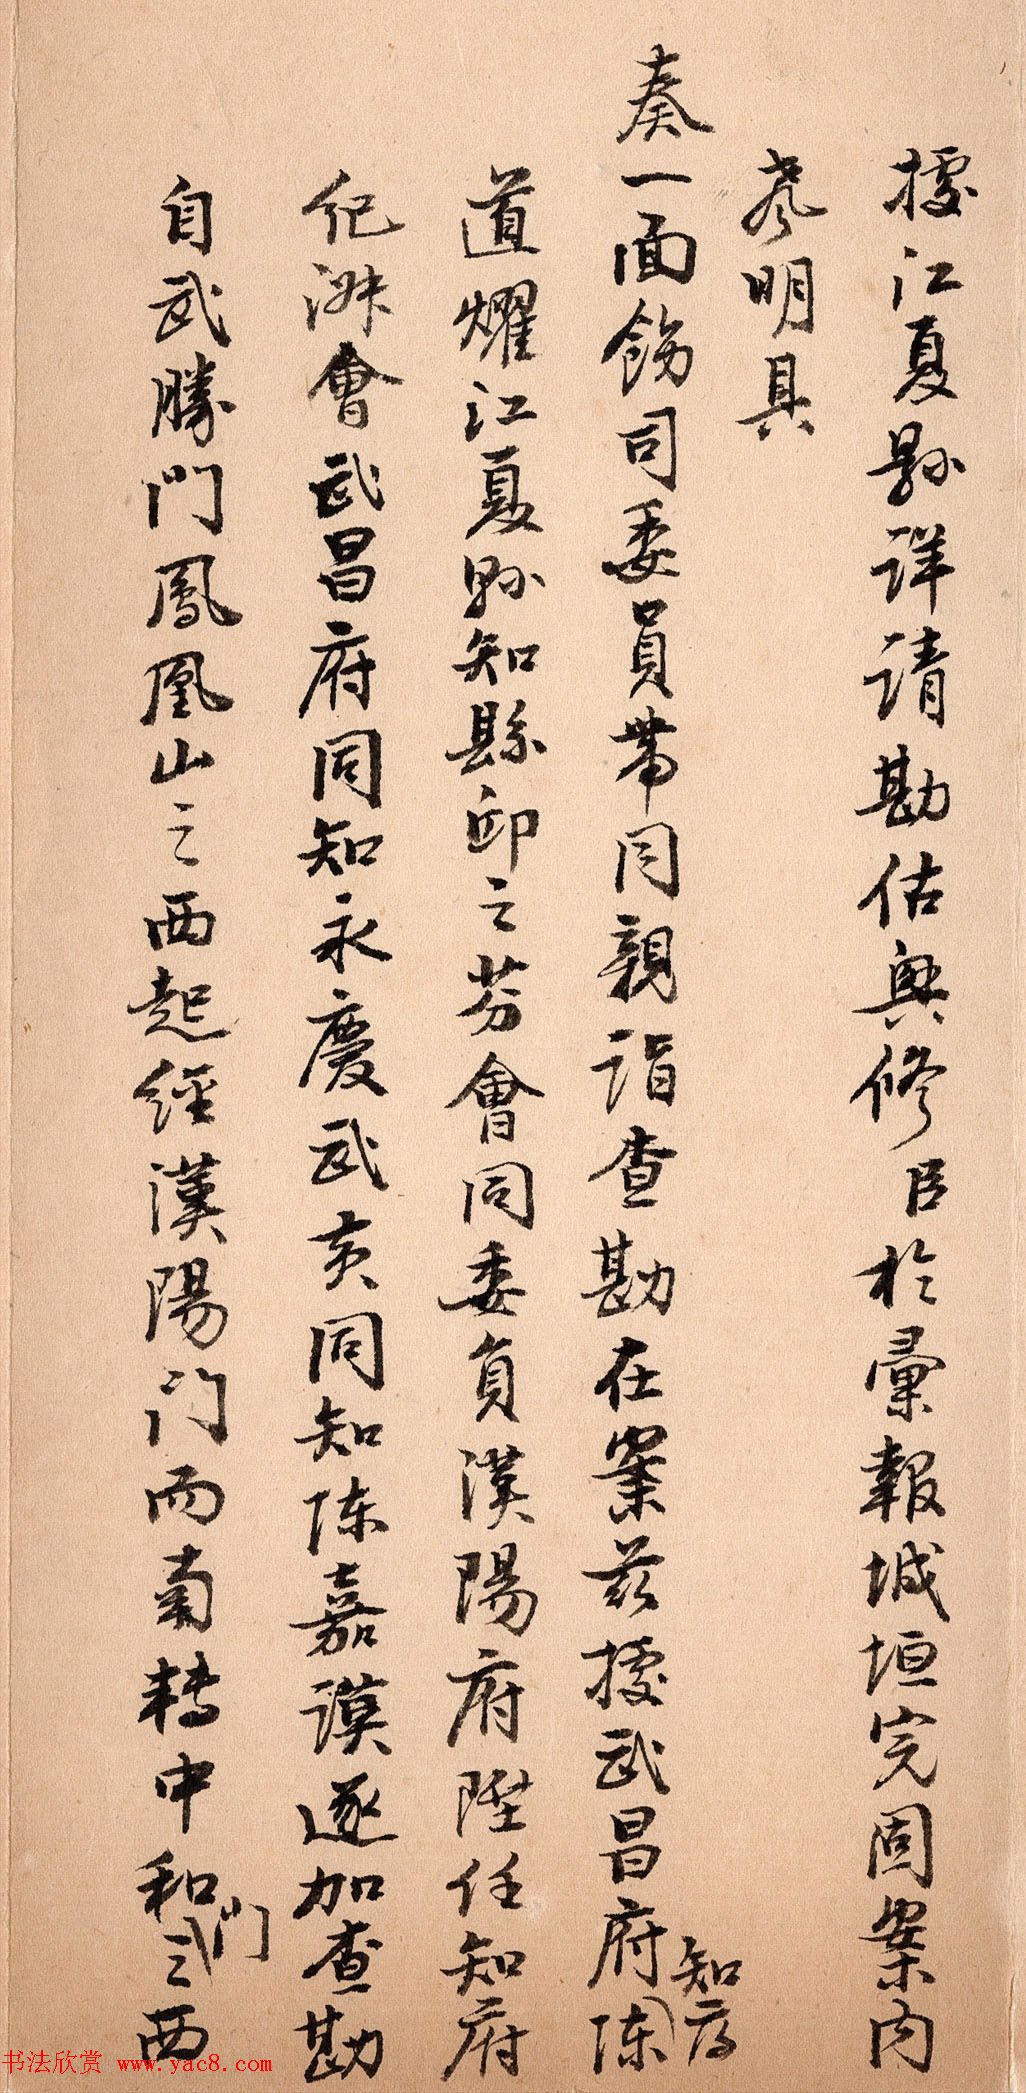 據江夏縣詳請勘估興修臣於彙報城垣完固案內
聲明具
奏一面飭司委員帶同親詣查勘在案茲據武昌府知府陳
道燿江夏縣知縣邱之芬會同委員漢陽府陞任知府
紀淋會武昌府同知永慶武黃同知陳嘉謨逐加查勘
自武勝門鳳凰山之西起經漢陽门而南轉中和門之西
书法欣赏 www.yac8.com